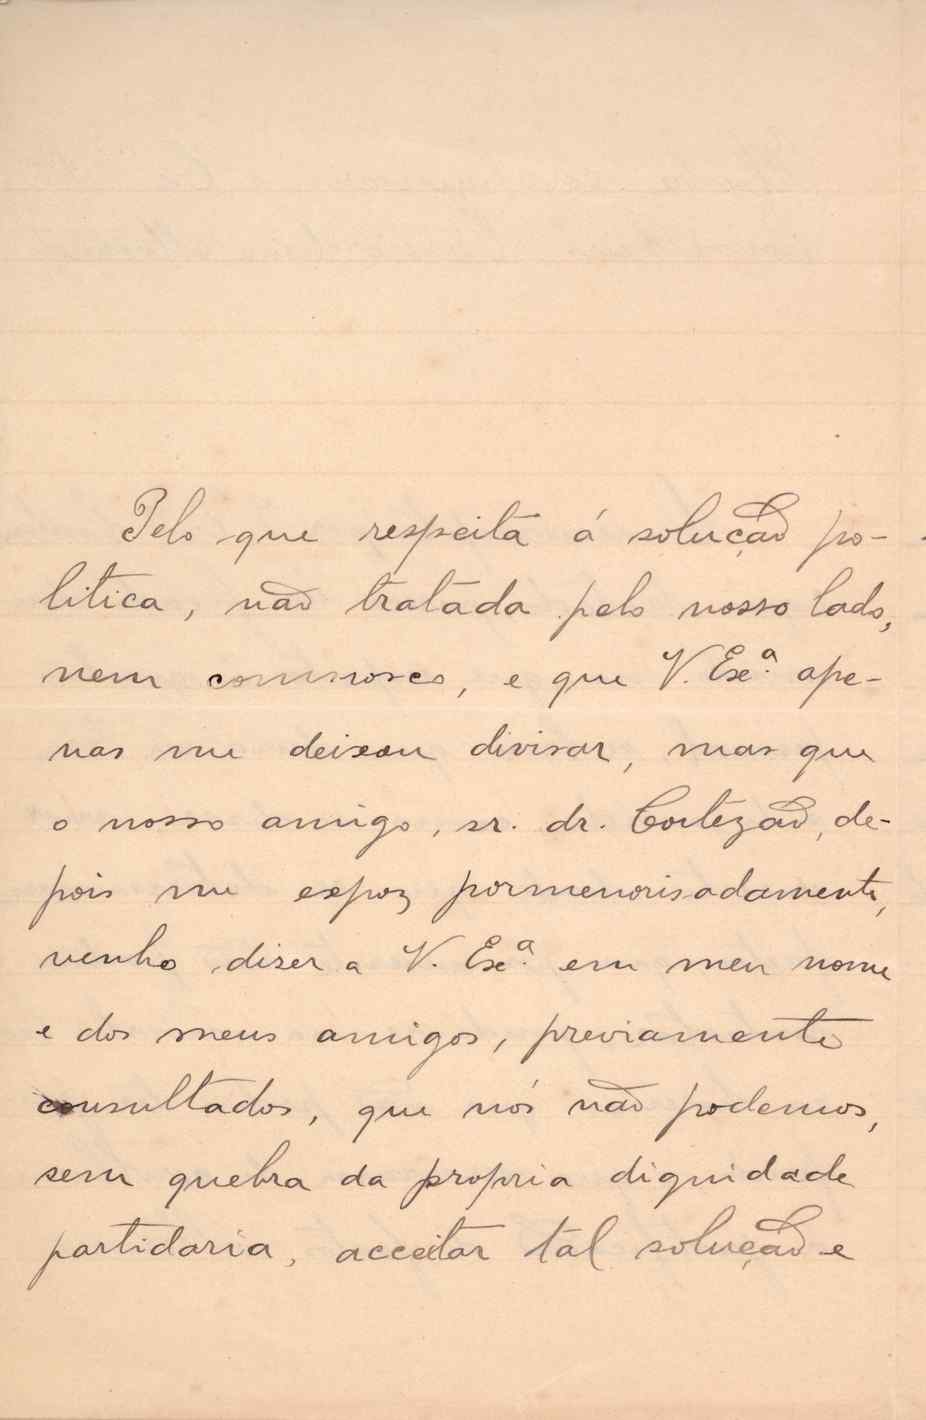 Pelo que respeita á solução po-
litica, não tratada pelo nosso lado,
nem comnosco, e que V. Exª. ape-
nas me deixou divisar, mas que
o nosso amigo, sr. dr. Cortezão, de-
pois me expoz pormenorisadamente,
venho diser a V. Exª. em meu nome
e dos meus amigos, previamente
consultados, que nós não podemos,
sem quebra da propria dignidade
partidaria, acceitar tal solução e